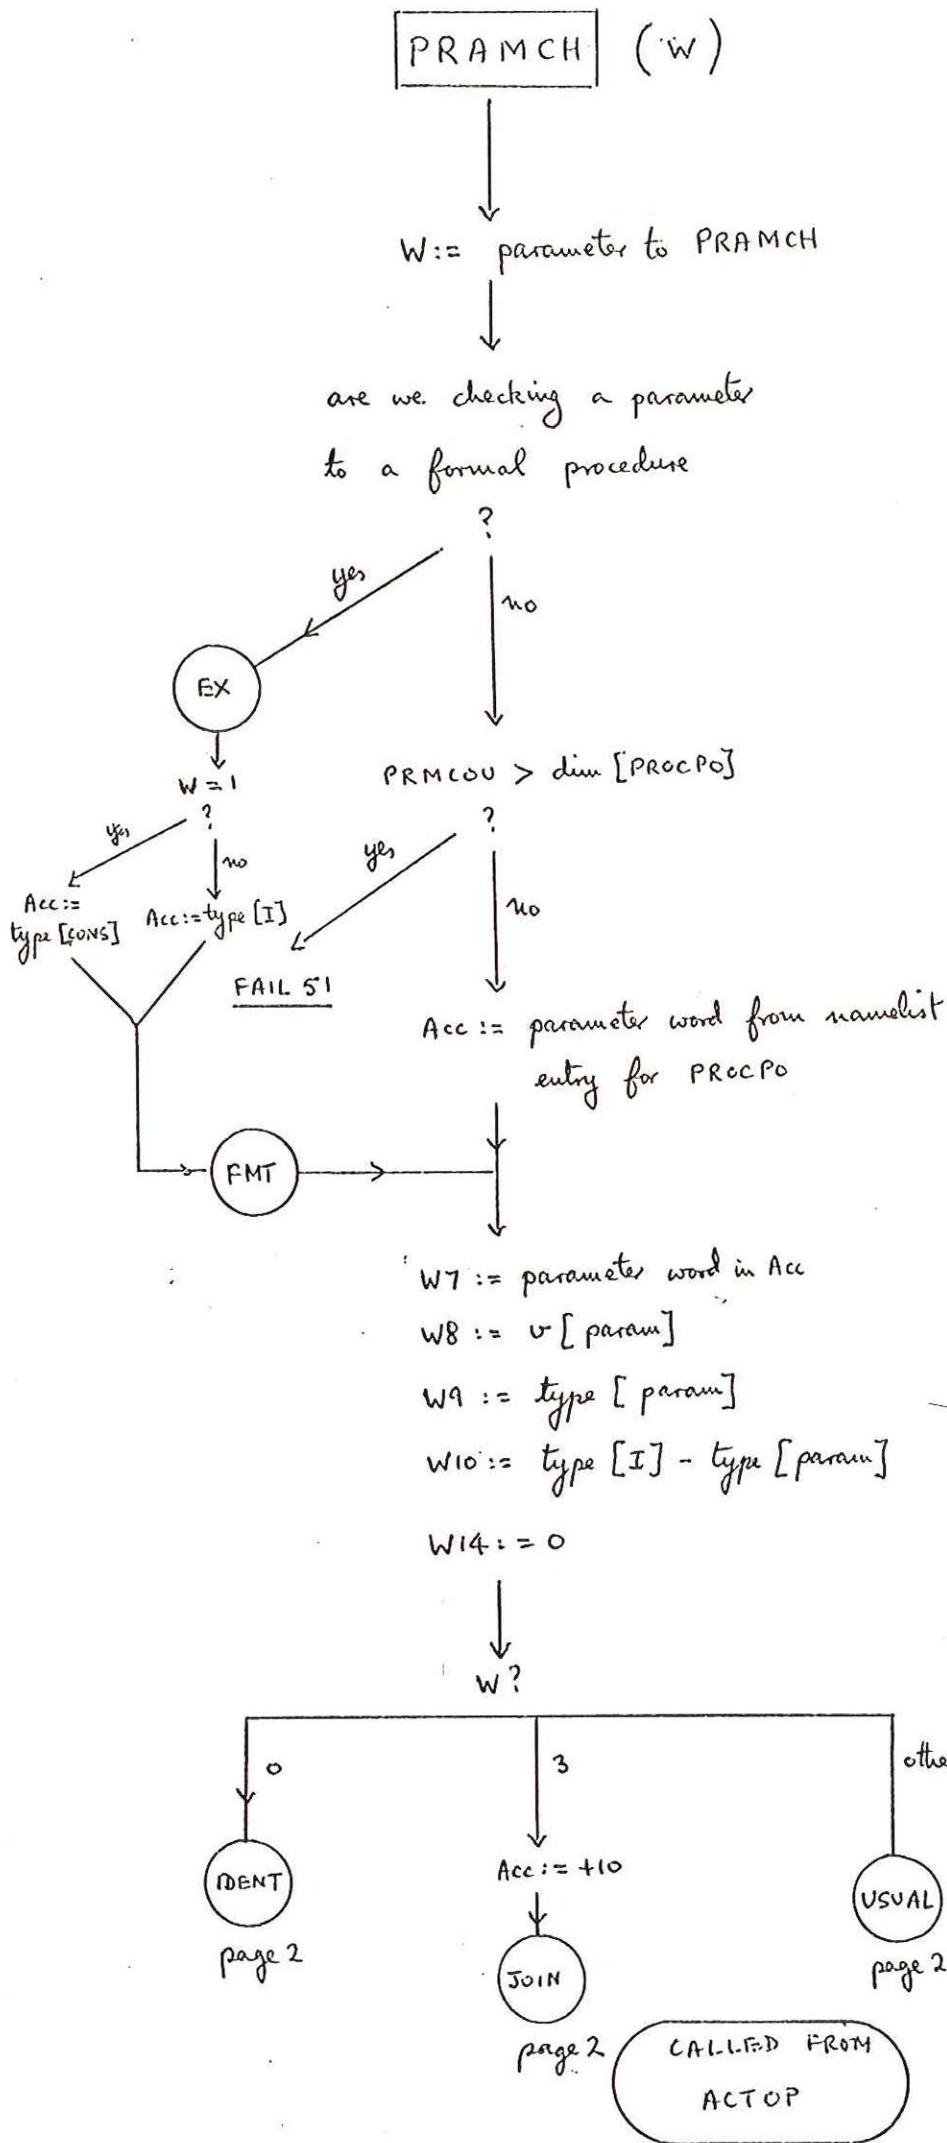 PRAMCH (W)
W := parameter to PRAMCH
are we checking a parameter
to a formal procedure
?
yes
no
EX
W = 1
?
yes
no
Acc :=
type [CONS]
Acc := type [I]
PRMCOU > dim [PROCPO]
?
yes
no
FAIL 51
Acc := parameter word from namelist
entry for PROCPO
FMT
W7 := parameter word in Acc
W8 := v [param]
W9 := type [param]
W10 := type [I] - type [param]
W14 := 0
W?
0
3
othe
IDENT
page 2
Acc := +10
JOIN
page 2
USUAL
page 2
CALLED FROM
ACTOP